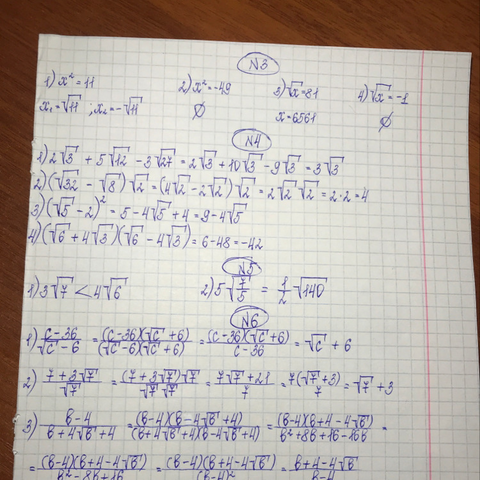 N3
1) x² = 11 2) x² = -49 3) √x = 81 4) √x = -1
x₁ = √11 ; x₂ = -√11 ∅ x = 6561 ∅
N4
1) 2√3 + 5√12 - 3√27 = 2√3 + 10√3 - 9√3 = 3√3
2) (√32 - √8)√2 = (4√2 - 2√2)√2 = 2√2 √2 = 2·2 = 4
3) (√5 - 2)² = 5 - 4√5 + 4 = 9 - 4√5
4) (√6 + 4√3)(√6 - 4√3) = 6 - 48 = -42
N5
1) 3√7 < 4√6 2) 5√(7/5) = 1/2 √140
N6
1) (c-36)/(√c - 6) = ((c-36)(√c + 6))/((√c - 6)(√c + 6)) = ((c-36)(√c + 6))/(c-36) = √c + 6
2) (7 + 3√7)/√7 = ((7 + 3√7)√7)/(√7 √7) = (7√7 + 21)/7 = 7(√7 + 3)/7 = √7 + 3
3) (b-4)/(b + 4√b + 4) = ((b-4)(b - 4√b + 4))/((b + 4√b + 4)(b - 4√b + 4)) = ((b-4)(b + 4 - 4√b))/(b² + 8b + 16 - 16b) =
= ((b-4)(b + 4 - 4√b))/(b² - 8b + 16) = ((b-4)(b + 4 - 4√b))/(b-4)² = (b + 4 - 4√b)/(b-4)